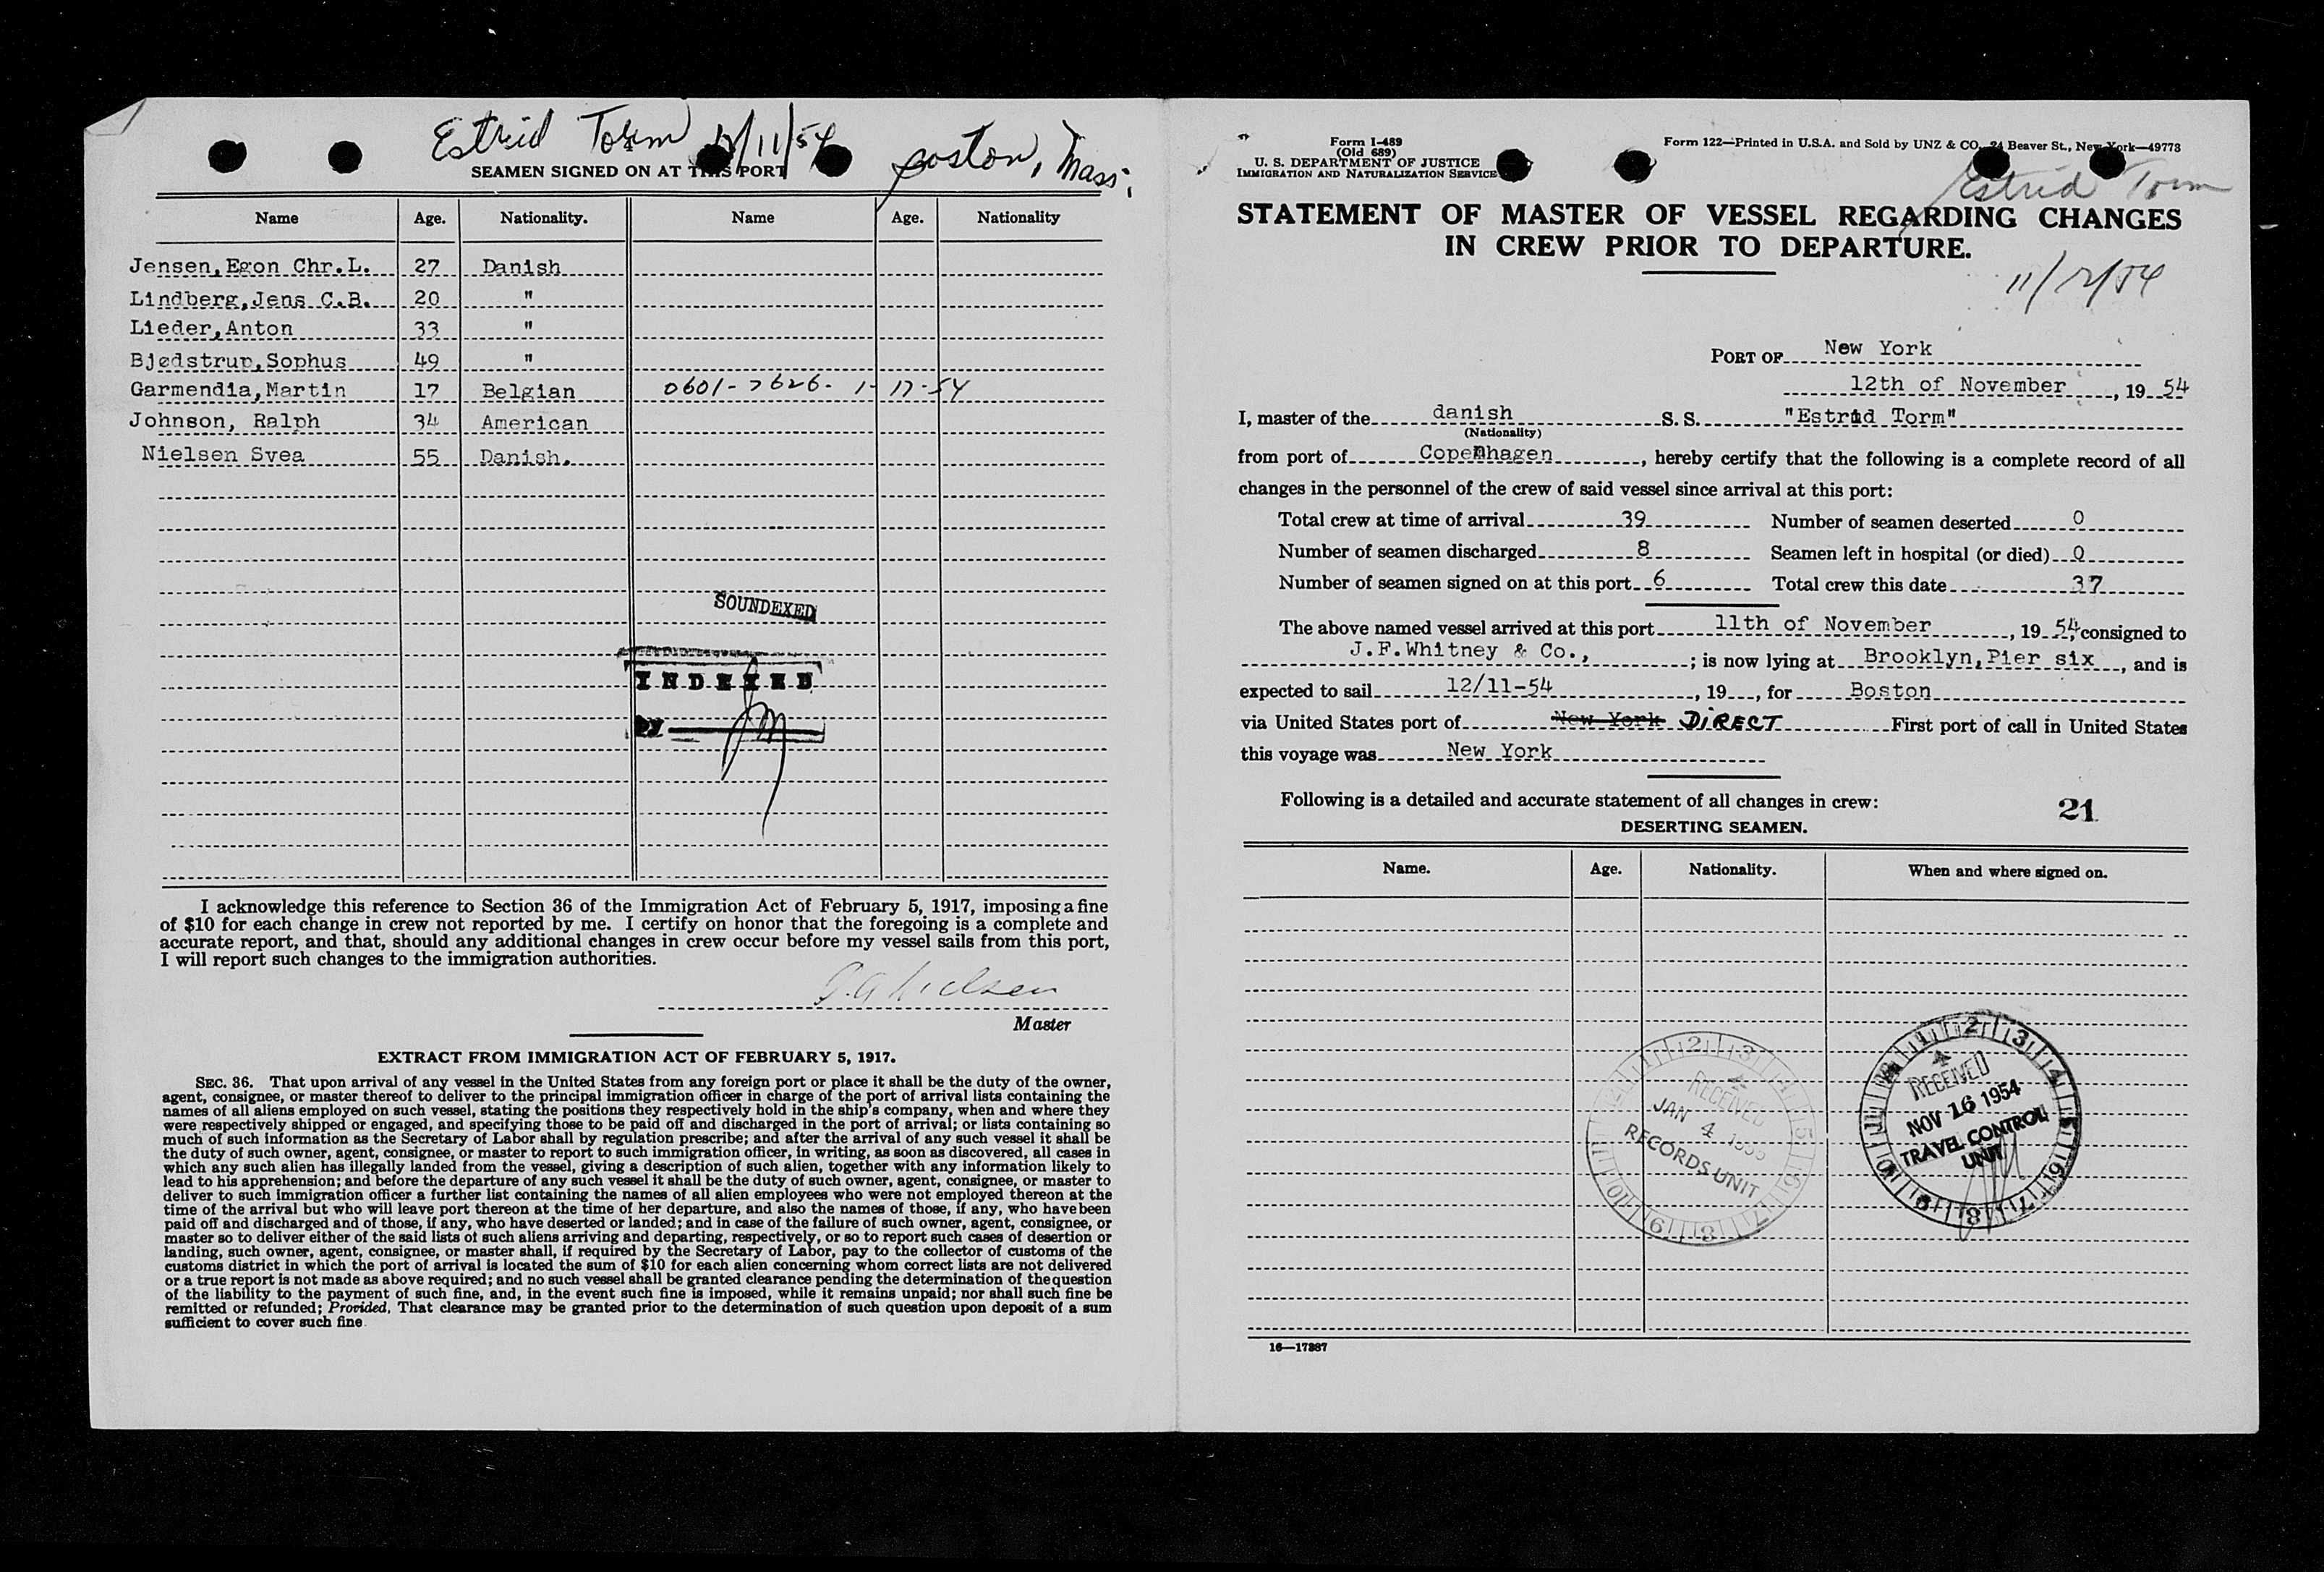 Estrid Torm 12/11/54 Boston, Mass.
SEAMEN SIGNED ON AT THIS PORT
Name Age. Nationality. Name Age. Nationality
Jensen,Egon Chr.L. 27 Danish
Lindberg,Jens C.B. 20 "
Lieder,Anton 33 "
Bjedstrup,Sophus 49 "
Garmendia,Martin 17 Belgian 0601-7626- 1-17-54
Johnson, Ralph 34 American
Nielsen Svea 55 Danish.
SOUNDEXED
INDEXED
by
I acknowledge this reference to Section 36 of the Immigration Act of February 5, 1917, imposing a fine
of $10 for each change in crew not reported by me. I certify on honor that the foregoing is a complete and
accurate report, and that, should any additional changes in crew occur before my vessel sails from this port,
I will report such changes to the immigration authorities.
Nielsen
Master
EXTRACT FROM IMMIGRATION ACT OF FEBRUARY 5, 1917.
SEC. 36. That upon arrival of any vessel in the United States from any foreign port or place it shall be the duty of the owner,
agent, consignee, or master thereof to deliver to the principal immigration officer in charge of the port of arrival lists containing the
names of all aliens employed on such vessel, stating the positions they respectively hold in the ship's company, when and where they
were respectively shipped or engaged, and specifying those to be paid off and discharged in the port of arrival; or lists containing so
much of such information as the Secretary of Labor shall by regulation prescribe; and after the arrival of any such vessel it shall be
the duty of such owner, agent, consignee, or master to report to such immigration officer, in writing, as soon as discovered, all cases in
which any such alien has illegally landed from the vessel, giving a description of such alien, together with any information likely to
lead to his apprehension; and before the departure of any such vessel it shall be the duty of such owner, agent, consignee, or master to
deliver to such immigration officer a further list containing the names of all alien employees who were not employed thereon at the
time of the arrival but who will leave port thereon at the time of her departure, and also the names of those, if any, who have been
paid off and discharged and of those, if any, who have deserted or landed; and in case of the failure of such owner, agent, consignee, or
master so to deliver either of the said lists of such aliens arriving and departing, respectively, or so to report such cases of desertion or
landing, such owner, agent, consignee, or master shall, if required by the Secretary of Labor, pay to the collector of customs of the
customs district in which the port of arrival is located the sum of $10 for each alien concerning whom correct lists are not delivered
or a true report is not made as above required; and no such vessel shall be granted clearance pending the determination of the question
of the liability to the payment of such fine, and, in the event such fine is imposed, while it remains unpaid; nor shall such fine be
remitted or refunded; Provided, That clearance may be granted prior to the determination of such question upon deposit of a sum
sufficient to cover such fine.
Form I-489
(Old 689)
U. S. DEPARTMENT OF JUSTICE
IMMIGRATION AND NATURALIZATION SERVICE
Form 122—Printed in U.S.A. and Sold by UNZ & CO., 24 Beaver St., New York—49773
Estrid Torm
STATEMENT OF MASTER OF VESSEL REGARDING CHANGES
IN CREW PRIOR TO DEPARTURE.
11/12/54
PORT OF New York
12th of November , 19 54
I, master of the danish S. S. "Estrid Torm"
(Nationality)
from port of Copenhagen , hereby certify that the following is a complete record of all
changes in the personnel of the crew of said vessel since arrival at this port:
Total crew at time of arrival 39 Number of seamen deserted 0
Number of seamen discharged 8 Seamen left in hospital (or died) 0
Number of seamen signed on at this port 6 Total crew this date 37
The above named vessel arrived at this port 11th of November , 19 54, consigned to
J.F.Whitney & Co., ; is now lying at Brooklyn,Pier six , and is
expected to sail 12/11-54 , 19 , for Boston
via United States port of New York DIRECT First port of call in United States
this voyage was New York
Following is a detailed and accurate statement of all changes in crew:
21
DESERTING SEAMEN.
Name. Age. Nationality. When and where signed on.
RECEIVED
JAN 4 1955
RECORDS UNIT
RECEIVED
NOV 16 1954
TRAVEL CONTROL
UNIT
16—17287